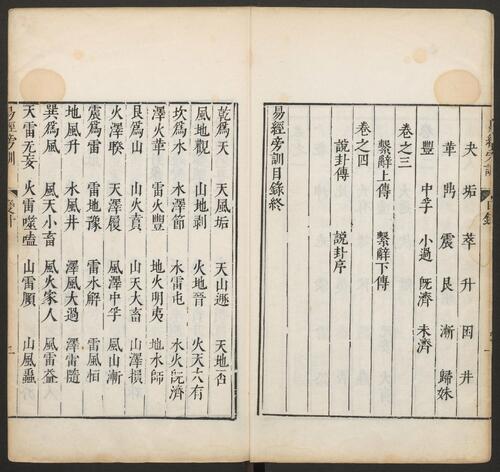 夬 姤 萃 升 困 井
革 鼎 震 艮 漸 歸妹
豐 中孚 小過 旣濟 未濟
卷之三
繫辭上傳 繫辭下傳
卷之四
說卦傳 說卦序
易經旁訓目錄終
乾爲天 天風姤 天山遯 天地否
風地觀 山地剝 火地晉 火天大有
坎爲水 水澤節 水雷屯 水火旣濟
澤火革 雷火豐 地火明夷 地水師
艮爲山 山火賁 山天大畜 山澤損
火澤睽 天澤履 風澤中孚 風山漸
震爲雷 雷地豫 雷水解 雷風恒
地風升 水風井 澤風大過 澤雷隨
巽爲風 風天小畜 風火家人 風雷益
天雷无妄 火雷噬嗑 山雷頤 山風蠱
易經旁訓